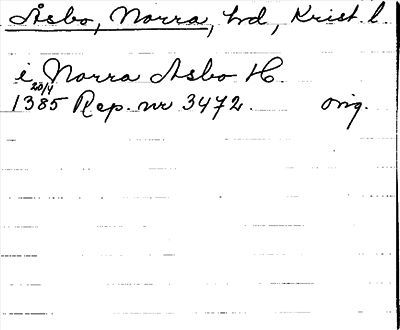 Åsbo, Norra, hd, Krist. l.
i Norra Åsbo H.
20/4
1385 Rep. nr 3472. orig.